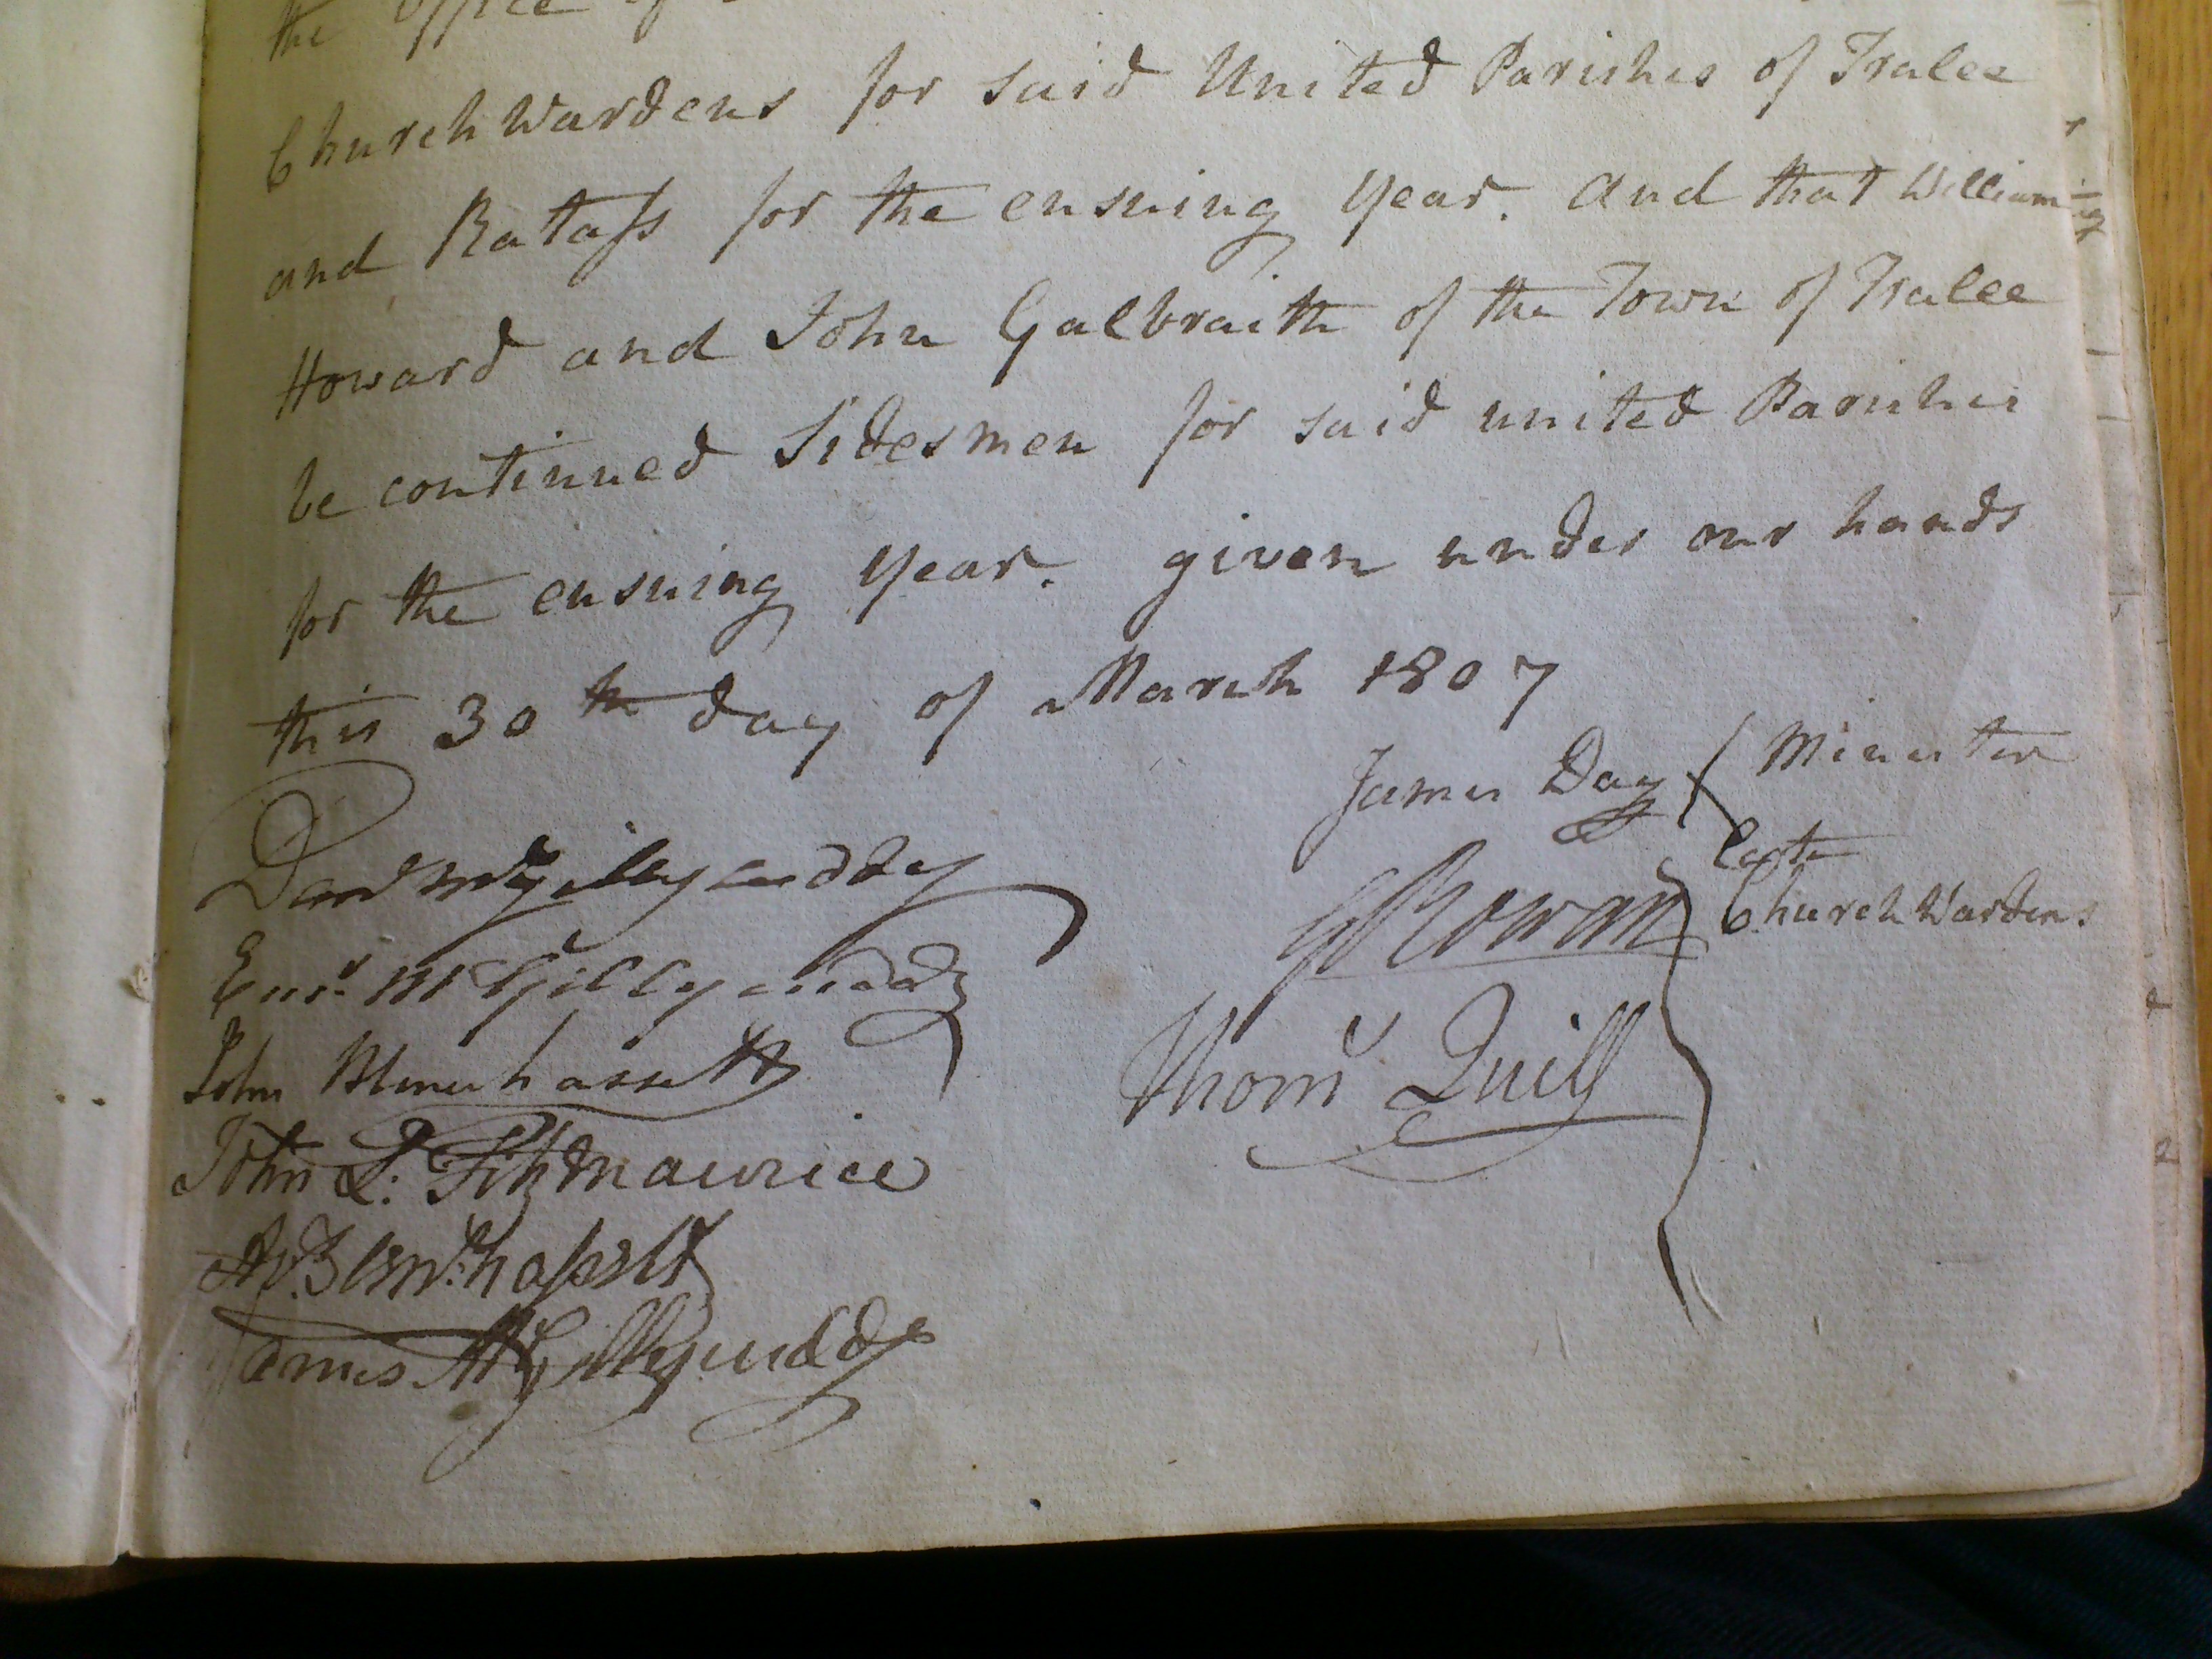 the Office of
Church Wardens for said United Parishes of Tralee
and Ratass for the ensuing year. And that William
Howard and John Galbraith of the Town of Tralee
be continued Sidesmen for said united Parishes
for the ensuing year. given under our hands
this 30th day of March 1807
James Day Minister
McGillycuddy
G Rowan Church Wardens
McGillycuddy
John Blennerhassett
Thoms Quill
John L: Fitzmaurice
A. Blennhassett
James McGillycuddy